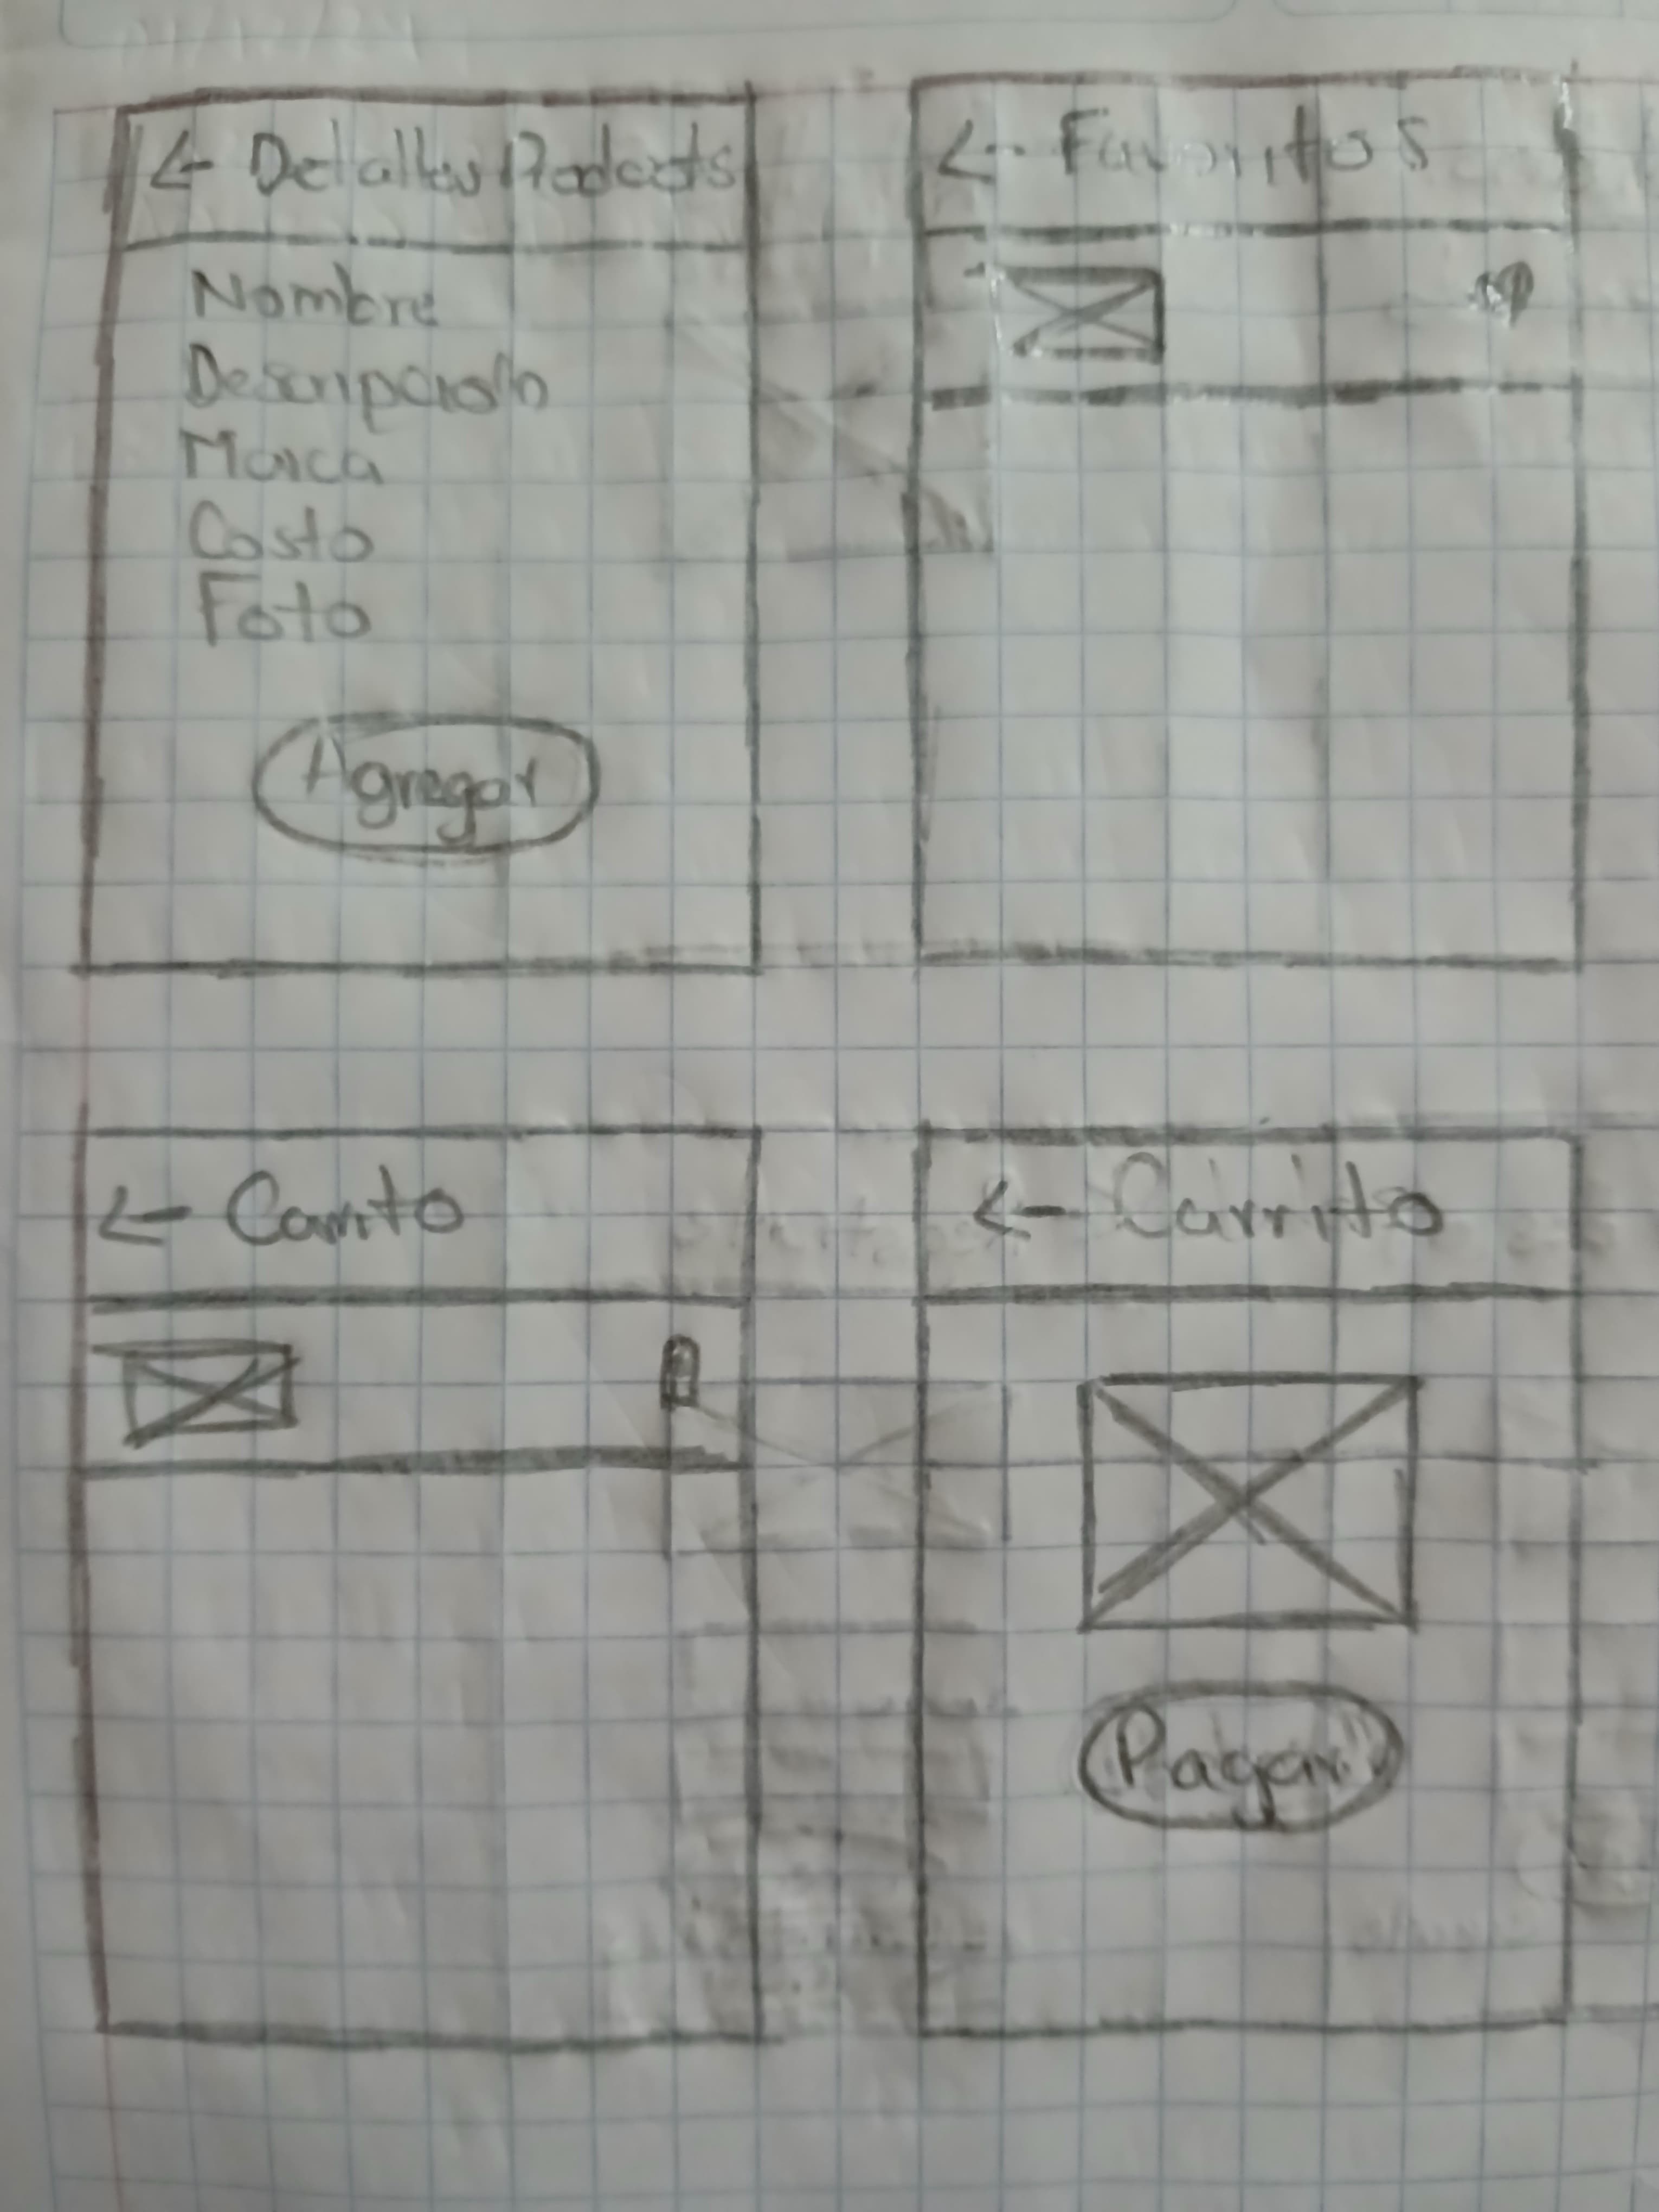 ← Detalles Producto
Nombre
Descripción
Marca
Costo
Foto
Agregar
← Favoritos
← Carrito
← Carrito
Pagar